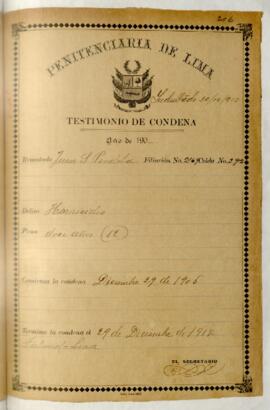 206
PENITENCIARIA DE LIMA
Indultado
TESTIMONIO DE CONDENA
Año de 190
Rematado Juan S. Filiación No. Celda No.
Delito Homicidio
Pena doce años (12)
Comienza la condena Diciembre 29 de 1906
Termina la condena el 29 de Diciembre de 1918
Lima
EL SECRETARIO